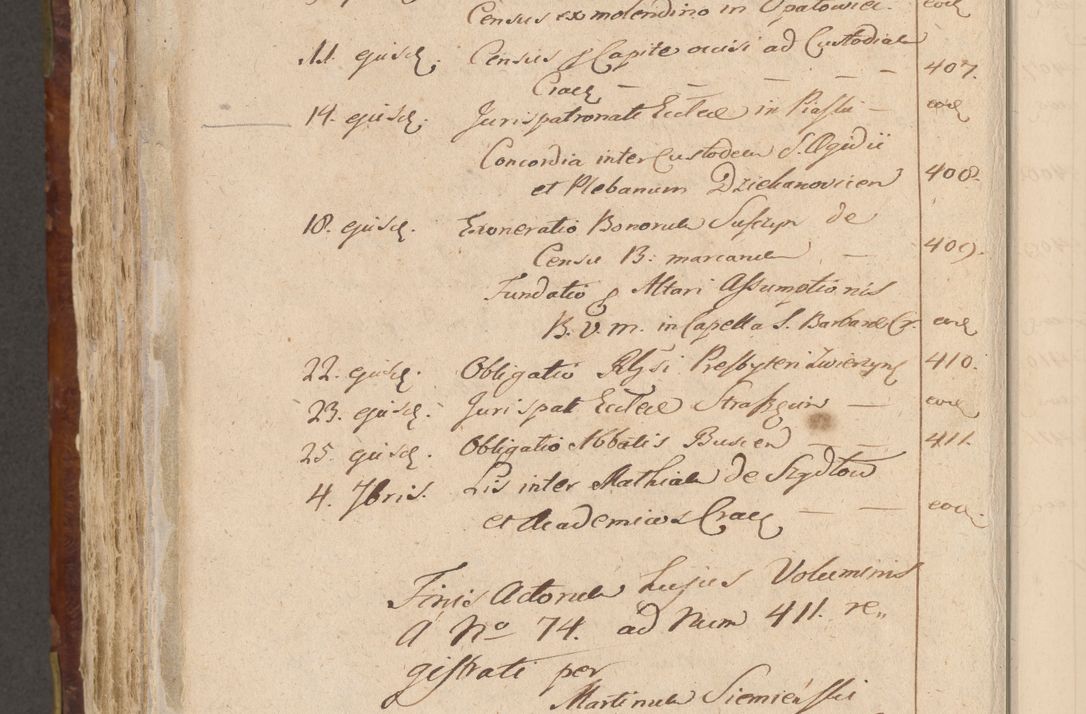 Census ex molendino in Opatowiec. eod
11. ejusd. Census p Capite occisi ad Custodiam
Crac – – – – 407.
14. ejusd. Jurispatronatg Eccleae in Piaski – eod
Concordia inter Custodem S. Ægidii
et Plebanum Dziekanovicien 408.
18. ejusd. Exoneratio Bonorum Sufczyn de
Censu B: marcarum – 409.
Fundatio p Altari Assumptionis
B. V. M. in Capella S. Barbarae Cr. eod
22. ejusd. Obligatio Presbyteri Zwierzyn 410.
23. ejusd. Jurispat Eccleae – eod
25. ejusd. Obligatio Abbatis Buscen – – 411.
4. 7bris. Lis inter Mathiam de Szydłow
et Academicos Crac – – eod.
Finis Actorum hujus Voluminis
A No 74. ad Num 411. re„
gistrati per
Martinum Siemieński